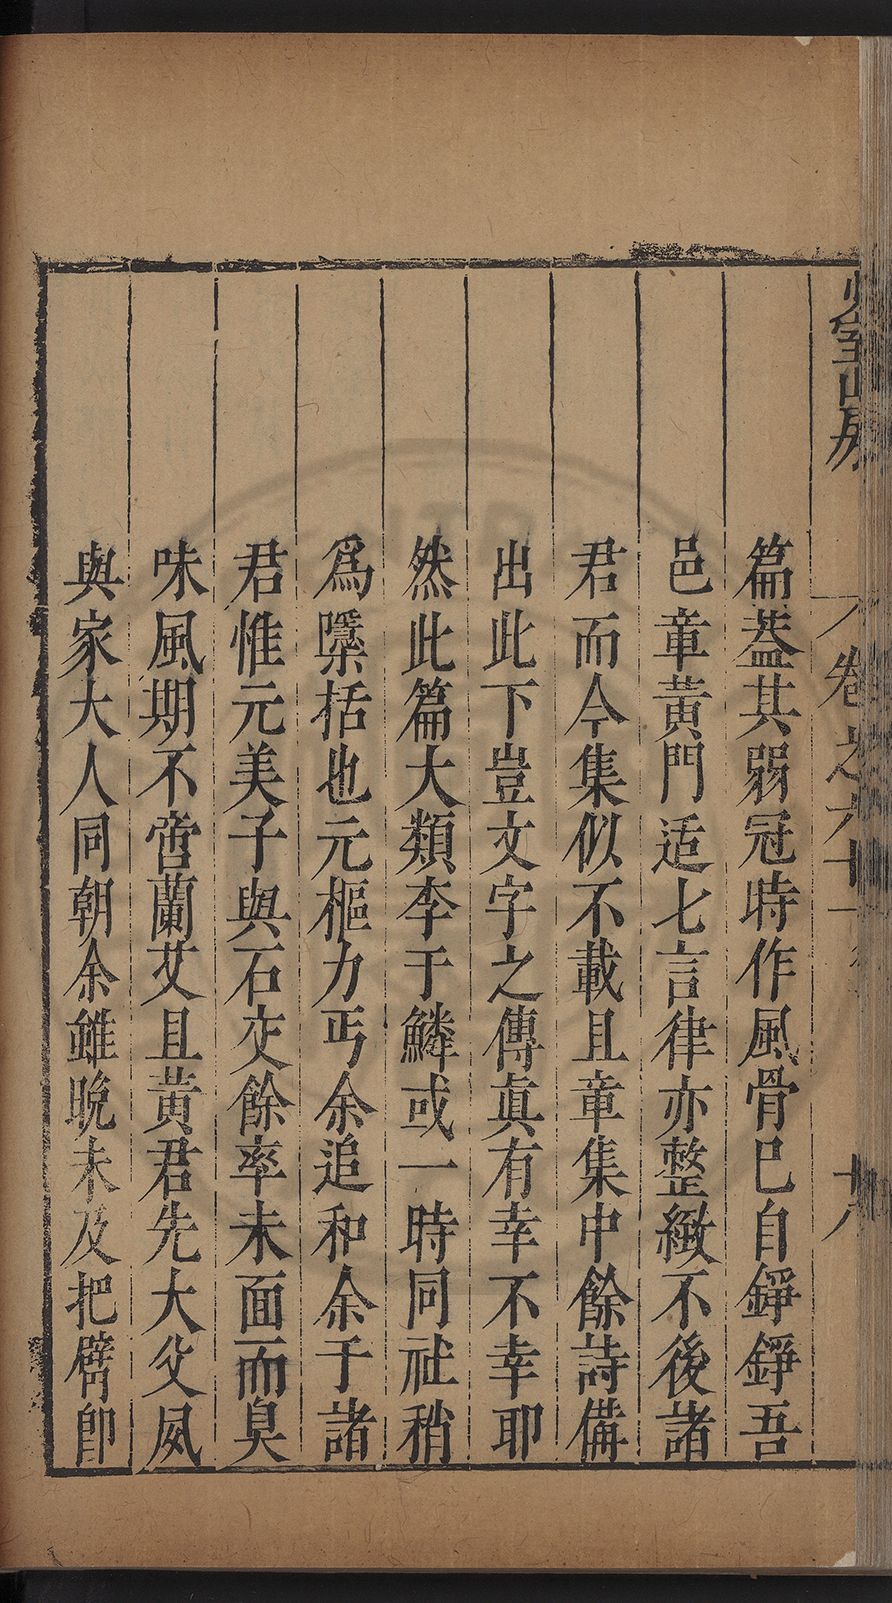 少室山房 卷之六十一 十八
篇葢其弱冠時作風骨巳自錚錚吾
邑章黃門适七言律亦整緻不後諸
君而今集似不載且章集中餘詩備
出此下豈文字之傳眞有幸不幸耶
然此篇大類李于鱗或一時同社稍
爲隱括也元樞力丐余追和余于諸
君惟元美子與石交餘率未面而臭
味風期不啻蘭艾且黃君先大父夙
與家大人同朝余雖晚未及把臂卽